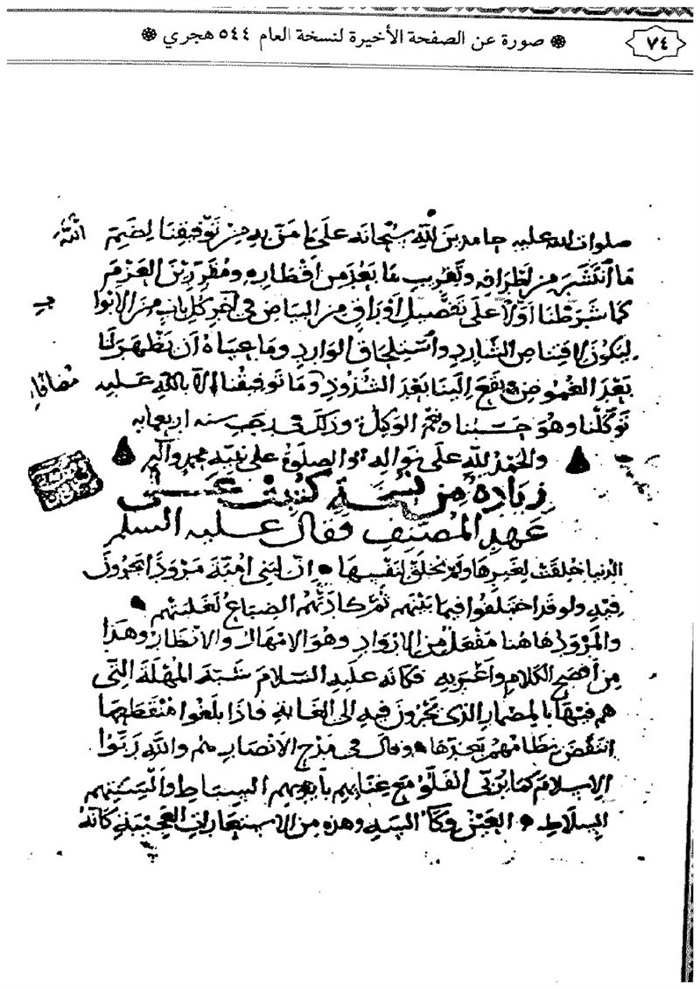 ٧٤
❁ صورة عن الصفحة الأخيرة لنسخة العام ٥٤٤ هجري ❁
صلوات الله عليه حامدين لله سبحانه على ما من به من توفيقنا لضم
ما انتشر من اطرافه وتقريب ما بعد من اقطاره ومقررين العزم
كما شرطنا اولا على تفضيل اوراق من البياض في آخر كل باب من الابوا
ب
ليكون لاقتناص الشارد واستلحاق الوارد وما عساه ان يظهر لنا
بعد الغموض ويقع الينا بعد الشذوذ وما توفيقنا الا بالله عليه
توكلنا وهو حسبنا ونعم الوكيل وذلك في رجب سنه اربعمايه
والحمد لله على نواله والصلوة على نبيه محمد وآله
زيادة من نسخة كتبت على
عهد المصنف وقال عليه السلم
الدنيا خلقت لغيرها ولم تخلق لنفسها ان لبني امية مرودا يجرون
فيه ولو قد اختلفوا فيما بينهم ثم كادتهم الضباع لغلبتهم
والمرود هاهنا مفعل من الارواد وهو الامهال والانظار وهذا
من افصح الكلام واغربه فكانه عليه السلام شبه المهلة التي
هم فيها بالمضمار الذي يجرون فيه الى الغاية فاذا بلغوا منقطعها
انتقض نظامهم بعدها وقال في مدح الانصار هم والله ربوا
الاسلام كما يربى الفلو مع غنايهم بايديهم السباط والسنتهم
السلاط العين وكآ السه وهذه من الاستعارات العجيبة كانه